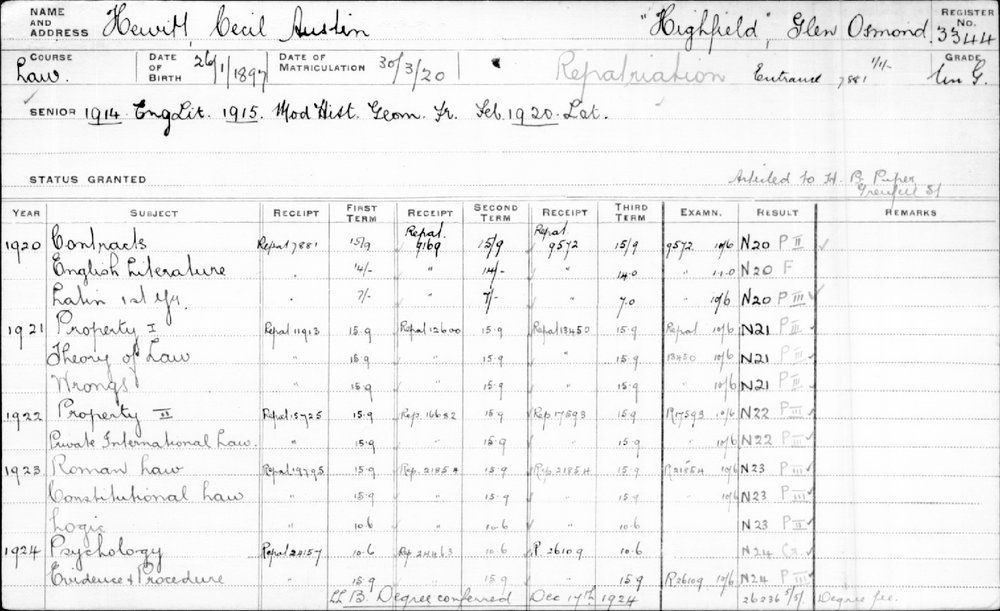 NAME AND ADDRESS Hewitt, Cecil Austin "Highfield", Glen Osmond. REGISTER No. 3344
COURSE Law. DATE OF BIRTH 26/1/1897 DATE OF MATRICULATION 30/3/20 Repatriation Entrance 7881 1/1/- GRADE
SENIOR 1914 Eng Lit. 1915. Mod Hist. Geom. Fr. Feb. 1920. Lat.
STATUS GRANTED Articled to H. B. Piper
Grenfell St
YEAR SUBJECT RECEIPT FIRST TERM RECEIPT SECOND TERM RECEIPT THIRD TERM EXAMN. RESULT REMARKS
1920 Contracts Repat 7881 15/9 Repat. 9169 15/9 Repat 9572 15/9 9572 10/6 N20 P II
English Literature 14/- " 14/- " 14.0 " 11.0 N20 F
Latin 1st Yr. " 7/- " 7/- " 7.0 10/6 N20 P III
1921 Property I Repat 11913 15.9 Repat 12600 15.9 Repat 13450 15.9 Repat 10/6 N21 P III
Theory of Law 15.9 15.9 " 15.9 13450 10/6 N21 P III
Wrongs " 15.9 " 15.9 " 15.9 " 10/6 N21 P II
1922 Property II Repat 15725 15.9 Rep. 16632 15.9 Rep 17593 15.9 R17593 10/6 N22 P III
Private International Law. " 15.9 " 15.9 " 15.9 " 10/6 N22 P III
1923 Roman Law Repat 19795 15.9 Rep. 21854 15.9 Rep. 21854 15.9 R21854 10/6 N23 P III
Constitutional Law " 15.9 " 15.9 " 15.9 " 10/6 N23 P III
Logic " 10.6 " 10.6 " 10.6 N23 P II
1924 Psychology Repat 24157 10.6 Rep 24463 10.6 R. 26109 10.6 N24 Cr.
Evidence & Procedure " 15.9 " 15.9 15.9 R26109 10/6 N24 P III
LL.B. Degree conferred Dec 17th. 1924 26236 5/5/- Degree fee.